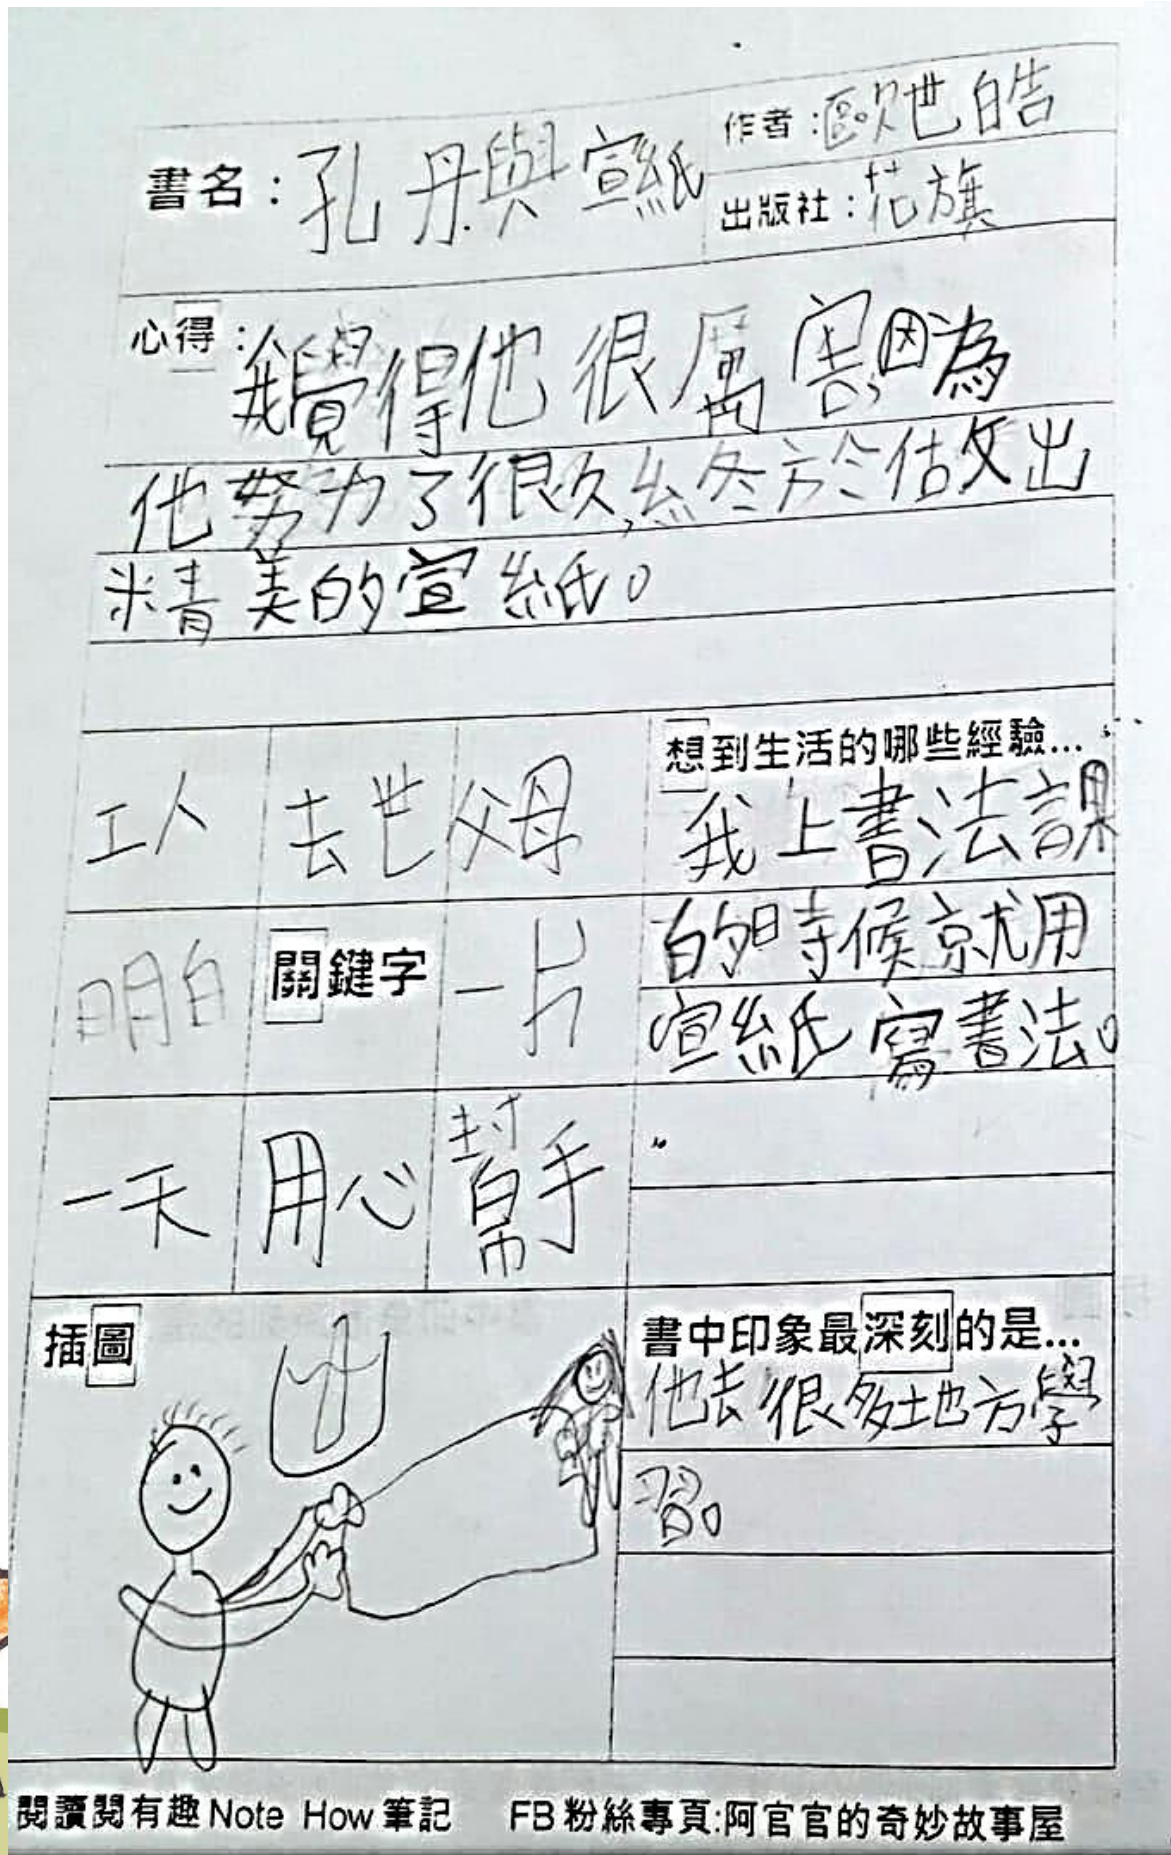 書名：孔丹與宣紙
作者：歐世皓
出版社：花旗
心得：我覺得他很厲害,因為
他努力了很久,終於做出
精美的宣紙。
工人 去世 父母
明白 關鍵字 一片
一天 用心 幫手
想到生活的哪些經驗...
我上書法課
的時候就用
宣紙寫書法。
插圖
書中印象最深刻的是...
他去很多地方學
習。
閱讀閱有趣 Note How 筆記 FB 粉絲專頁:阿官官的奇妙故事屋